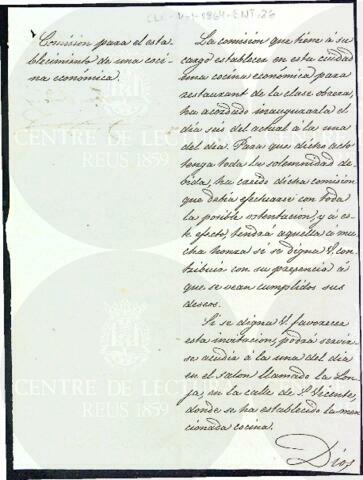 CL.-V-1-1864-ENT.26
Comision para el esta-
blecimiento de una coci-
na económica.
La comision que tiene á su
cargo establecer en esta ciudad
una cocina económica para
restaurant de la clase obrera,
ha acordado inaugurarla el
dia seis del actual á la una
del dia. Para que dicho acto
tenga toda la solemnidad de-
bida, ha creido dicha comision
que debia efectuarse con toda
la posible ostentacion, y á es-
te efecto, tendrá aquella á mu-
cha honra si se digna V. con-
tribuir con su presencia á
que se vean cumplidos sus
deseos.
Si se digna V. favorecer
esta invitacion, podrá servir-
se acudir á la una del dia
en el salon llamado la Lon-
ja, en la calle de S. Vicente,
donde se ha establecido la men-
cionada cocina.
Dios
CENTRE DE LECTURA
REUS 1859
CENTRE DE LECTURA
REUS 1859